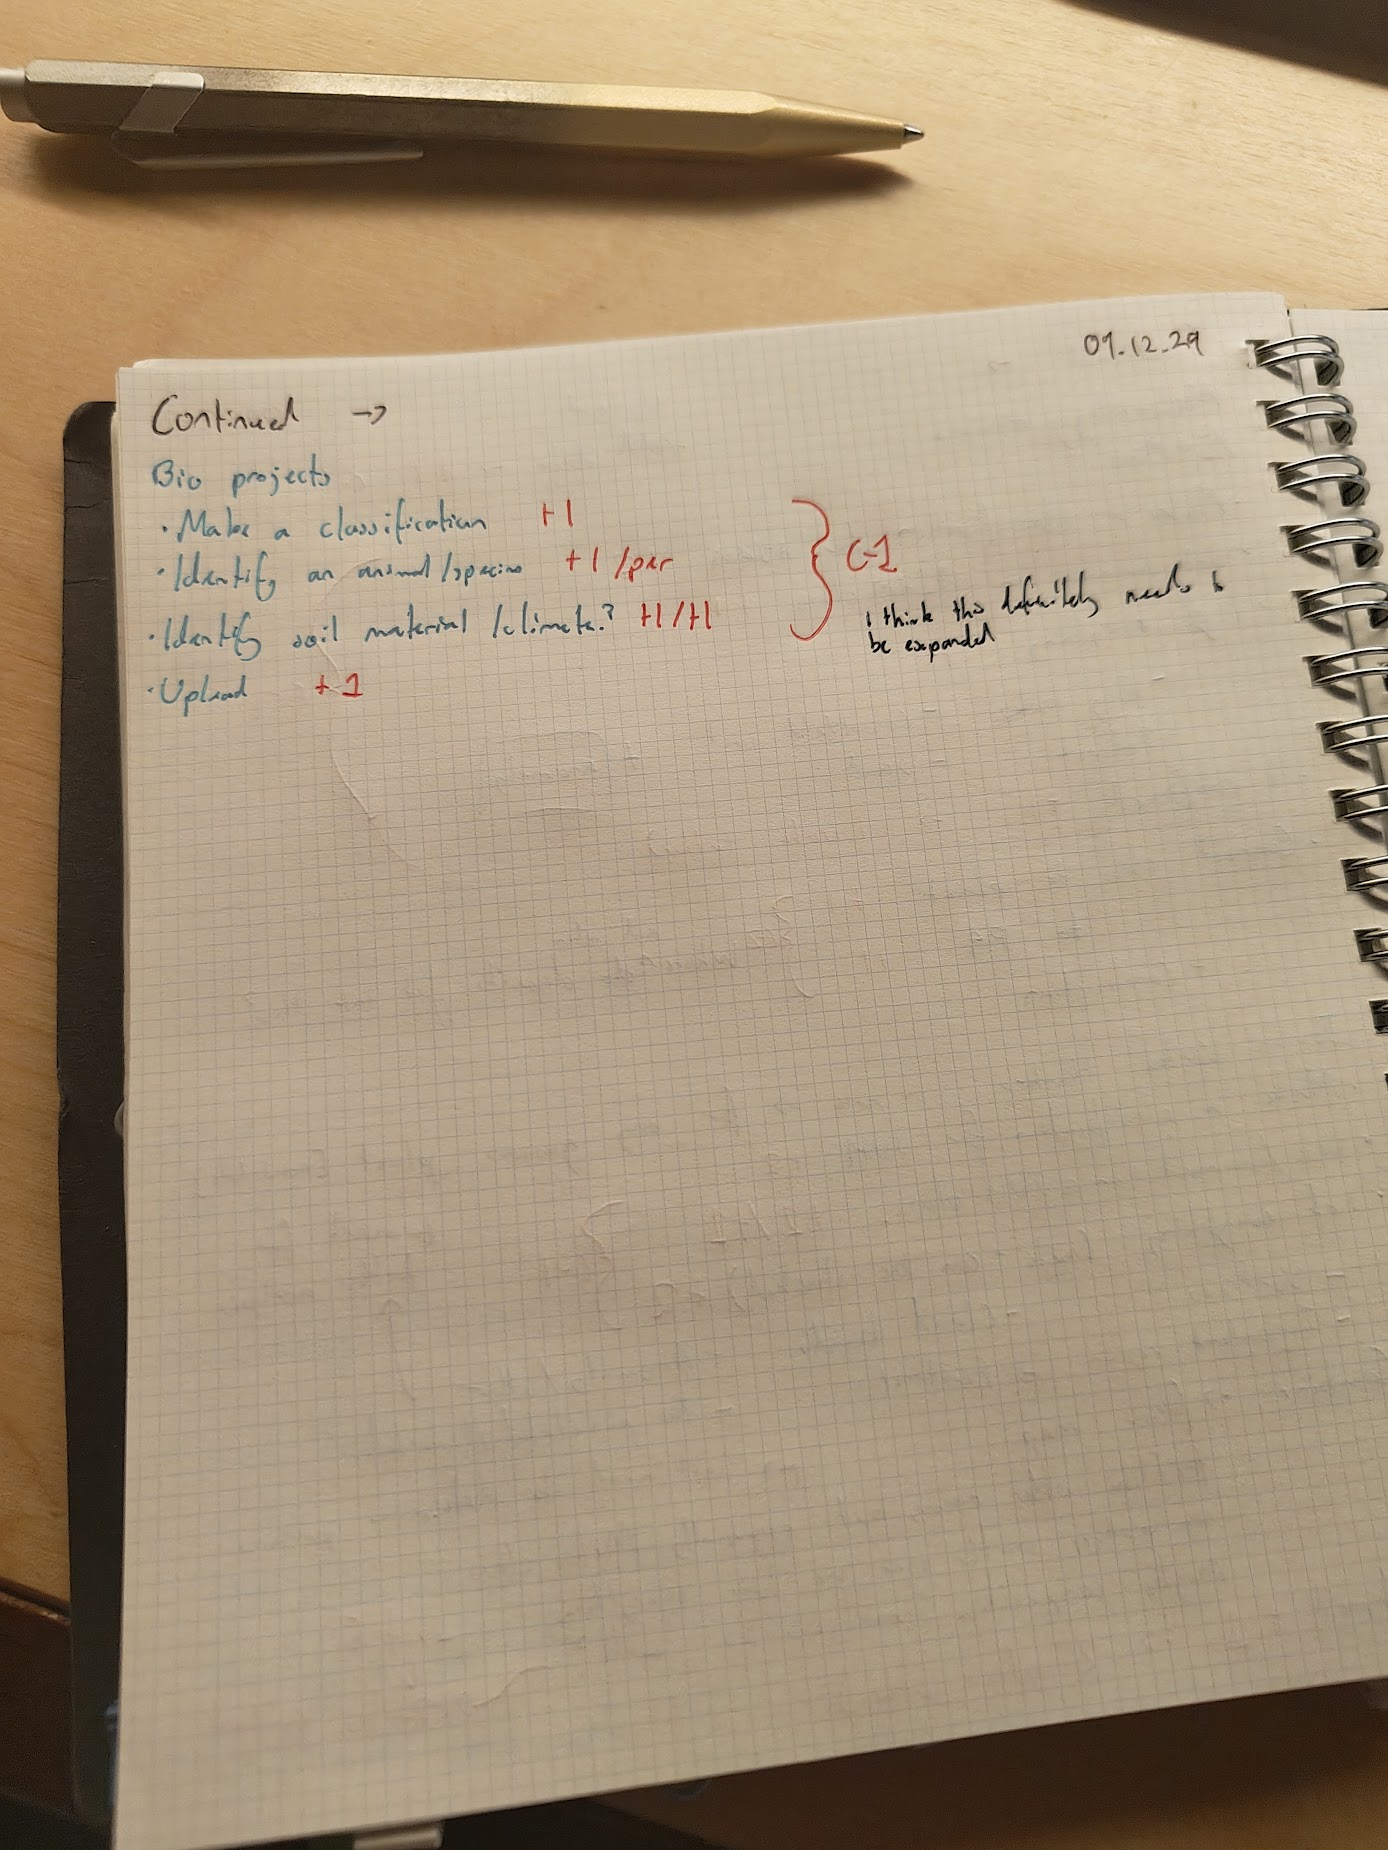 09.12.24
Continued →
Bio projects
· Make a classification +1
· Identify an animal/species +1/per
· Identify soil material/climate? +1/+1
· Upload +1
} C-1
I think this definitely needs to
be expanded